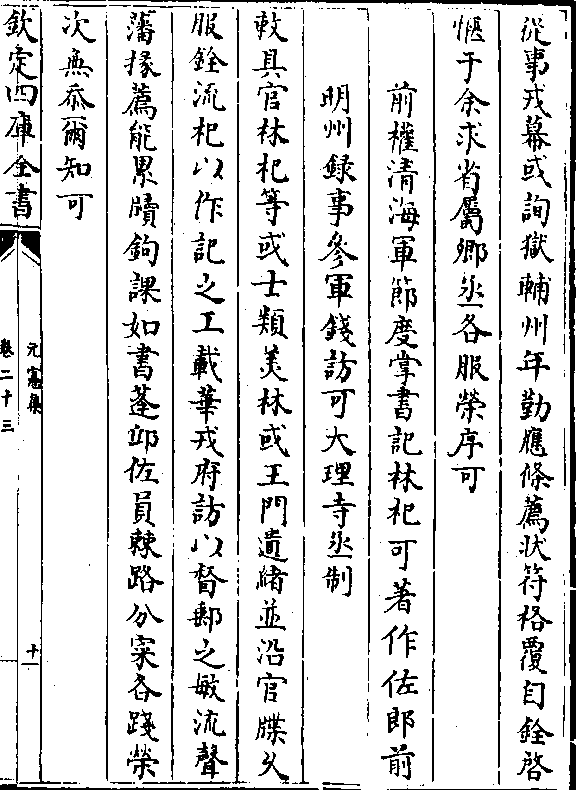 從事戎幕或詢獄輔州年勤應條薦狀符格覆自銓啓
愜于余求省屬卿丞各服榮序可
前權清海軍節度掌書記林杞可著作佐郎前
明州録事參軍錢訪可大理寺丞制
敕具官林杞等或士類美林或王門遺緒並沿官牒久
服銓流杞以作記之工載華戎府訪以督郵之敏流聲
藩掾薦能累牘鉤課如書蓬邱佐員棘路分寀各踐榮
次無忝爾知可
欽定四庫全書
元憲集
卷二十三
十